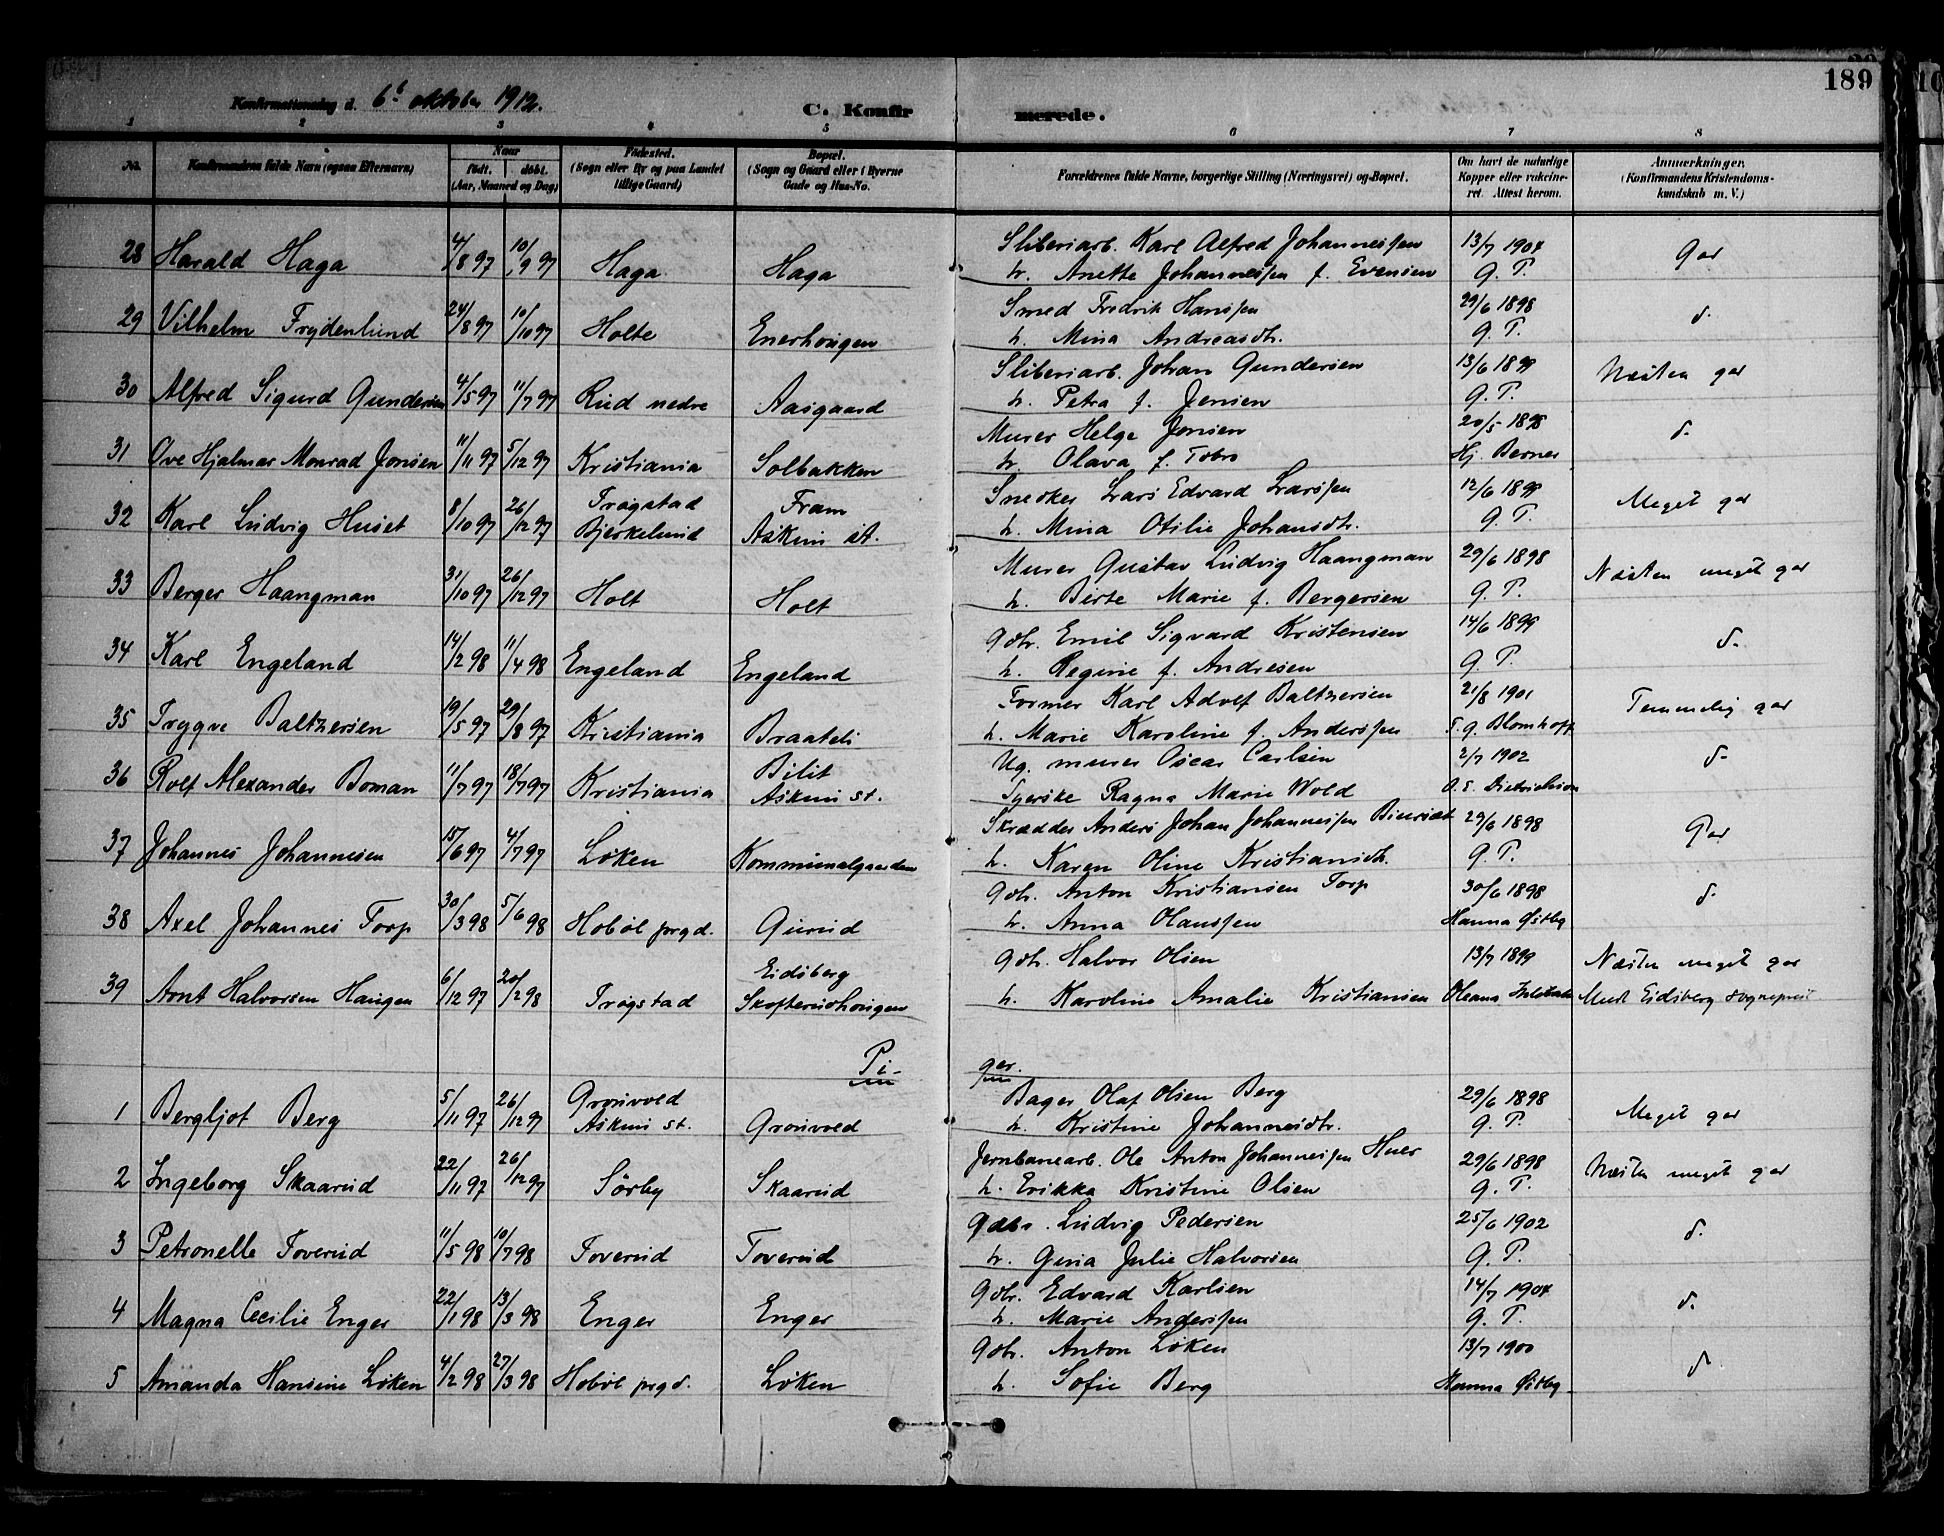 189
Konfirmationsdag d. 6t oktober 1912.
C. Konfirmerede.
1 2 3 4 5 6 7 8
No. Konfirmandens fulde Navn (ogsaa Efternavn) Naar født. døbt. (Aar, Maaned og Dag) Fødested. (Sogn eller By og paa Landet tillige Gaard) Bopæl. (Sogn og Gaard eller i Byerne Gade og Hus-No. Forældrenes fulde Navne, borgerlige Stilling (Næringsvei) og Bopæl. Om havt de naturlige Kopper eller vaksineret. Attest herom. Anmærkninger. (Konfirmandens Kristendomskundskab m. V.)
28 Harald Haga 4/8 97 10/9 97 Haga Haga Sliberiarb. Karl Alfred Johannessen 13/7 1904 Gor
h. Anette Johannessen f. Evensen G. T.
29 Vilhelm Frydenlund 24/8 97 10/10 97 Holte Enerhougen Smed Fredrik Hanssen 29/6 1898 d.
h. Mina Andreasdtr. G. T.
30 Alfred Sigurd Gundersen 4/5 97 11/7 97 Rud nedre Aasgaard Sliberiarb. Johan Gundersen 13/6 1899 Næsten gor
h. Petra f. Jensen G. T.
31 Ove Hjalmar Monrad Jonsen 11/11 97 5/12 97 Kristiania Solbakken Murer Helge Jonsen 20/5 1898 d.
h. Olava f. Hj. Berner
32 Karl Ludvig Huset 8/10 97 26/12 97 Trøgstad Bjerkelund Fram Askim st. Snedker Lars Edvard Larssen 12/6 1899 Meget gor
h. Mina Otilie Johansdtr. G. T.
33 Berger Haangman 31/10 97 26/12 97 Holt Holt Murer Gustav Ludvig Haangman 29/6 1898 Næsten meget gor
h. Berte Marie f. Bergersen G. T.
34 Karl Engeland 14/2 98 11/4 98 Engeland Engeland Gdbr. Emil Sigvard Kristensen 14/6 1899 d.
h. Regine f. Andresen G. T.
35 Trygve Baltzersen 19/5 97 29/8 97 Kristiania Braateli Former Karl Adolf Baltzersen 21/8 1901 Temmelig gor
h. Marie Karoline f. Anderssen T. G. Blomhoff
36 Rolf Alexander Boman 11/7 97 18/7 97 Kristiania Bilit Askim st. Ug. murer Oscar Carlsen 2/7 1902 d.
Tyerske Ragna Marie Wold O. S. Dietrichson
37 Johannes Johannesen 15/6 97 4/7 97 Løken Kommunalgaarden Skrædder Anders Johan Johannessen 29/6 1898 Gor
h. Karen Oline Kristiansdtr. G. T.
38 Axel Johannes Torp 30/3 98 5/6 98 Hobøl prgd. Gurud Gdbr. Anton Kristiansen Torp 30/6 1898 d.
h. Anna Olaussen Hanna Østby
39 Arnt Halvorsen Haugen 6/12 97 20/2 98 Trøgstad Eidsberg Skofterudhougen Gdbr. Halvor Olsen 13/7 1899 Næsten meget gor
h. Karoline Amalie Kristiansen Oleana Eidsberg sogneprest
Piger.
1 Bergljot Berg 5/11 97 26/12 97 Grønvold Askim st. Grønvold Bager Olaf Olsen Berg 29/6 1898 Meget gor
h. Kristine Johannesdtr. G. T.
2 Ingeborg Skaarud 22/11 97 26/12 97 Sørby Skaarud Jernbanearb. Ole Anton Johannessen Huer 29/6 1898 Næsten meget gor
h. Erikka Kristine Olsen G. T.
3 Petronelle Toverud 11/5 98 10/7 98 Toverud Toverud Gdbr. Ludvig Pedersen 25/6 1902 d.
h. Gina Julie Halvorsen G. T.
4 Magna Cecilie Enger 22/1 98 13/3 98 Enger Enger Gdbr. Edvard Karlsen 14/7 1904 d.
h. Marie Anderssen G. T.
5 Amanda Hansine Løken 4/2 98 27/3 98 Hobøl prgd. Løken Gdbr. Anton Løken 13/7 1900 d
h. Sofie Berg Hanna Østby